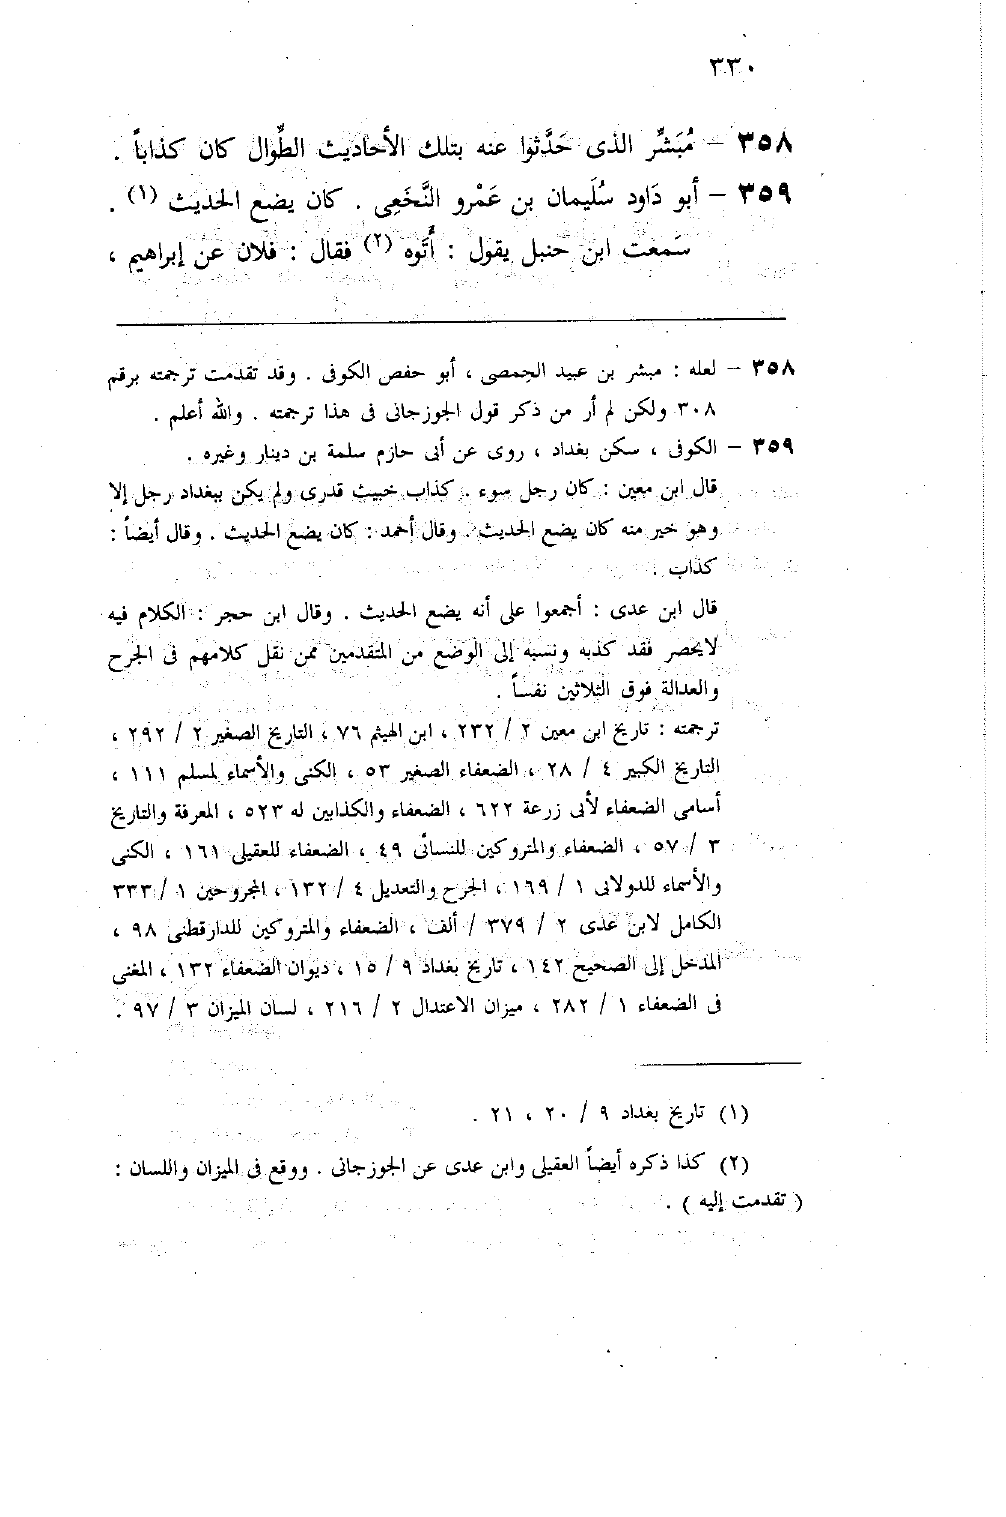 ٣٣٠
٣٥٨ – مُبَشِّر الذى حَدَّثوا عنه بتلك الأحاديث الطِّوال كان كذاباً .
٣٥٩ – أبو دَاود سُلَيمان بن عَمْرو النَّخَعِى . كان يضع الحديث (١) .
سَمعت ابن حنبل يقول : أَتَوه (٢) فقال : فلان عن إبراهيم ،
٣٥٨ – لعله : مبشر بن عبيد الحِمصى ، أبو حفص الكوفى . وقد تقدمت ترجمته برقم
٣٠٨ ولكن لم أر من ذكر قول الجوزجانى فى هذا ترجمته . والله أعلم .
٣٥٩ – الكوفى ، سكن بغداد ، روى عن أبى حازم سلمة بن دينار وغيره .
قال ابن معين : كان رجل سوء . كذاب خبيث قدرى ولم يكن ببغداد رجل إلا
وهو خير منه كان يضع الحديث . وقال أحمد : كان يضع الحديث . وقال أيضاً :
كذاب .
قال ابن عدى : أجمعوا على أنه يضع الحديث . وقال ابن حجر : الكلام فيه
لايحصر فقد كذبه ونسبه إلى الوضع من المتقدمين ممن نقل كلامهم فى الجرح
والعدالة فوق الثلاثين نفساً .
ترجمته : تاريخ ابن معين ٢ / ٢٣٢ ، ابن الهيثم ٧٦ ، التاريخ الصغير ٢ / ٢٩٢ ،
التاريخ الكبير ٤ / ٢٨ ، الضعفاء الصغير ٥٣ ، الكنى والأسماء لمسلم ١١١ ،
أسامى الضعفاء لأبى زرعة ٦٢٢ ، الضعفاء والكذابين له ٥٢٣ ، المعرفة والتاريخ
٣ / ٥٧ ، الضعفاء والمتروكين للنسائى ٤٩ ، الضعفاء للعقيلى ١٦١ ، الكنى
والأسماء للدولابى ١ / ١٦٩ ، الجرح والتعديل ٤ / ١٣٢ ، المجروحين ١ / ٣٣٣
الكامل لابن عدى ٢ / ٣٧٩ / ألف ، الضعفاء والمتروكين للدارقطنى ٩٨ ،
المدخل إلى الصحيح ١٤٢ ، تاريخ بغداد ٩ / ١٥ ، ديوان الضعفاء ١٣٢ ، المغنى
فى الضعفاء ١ / ٢٨٢ ، ميزان الاعتدال ٢ / ٢١٦ ، لسان الميزان ٣ / ٩٧ .
(١) تاريخ بغداد ٩ / ٢٠ ، ٢١ .
(٢) كذا ذكره أيضاً العقيلى وابن عدى عن الجوزجانى . ووقع فى الميزان واللسان :
( تقدمت إليه ) .